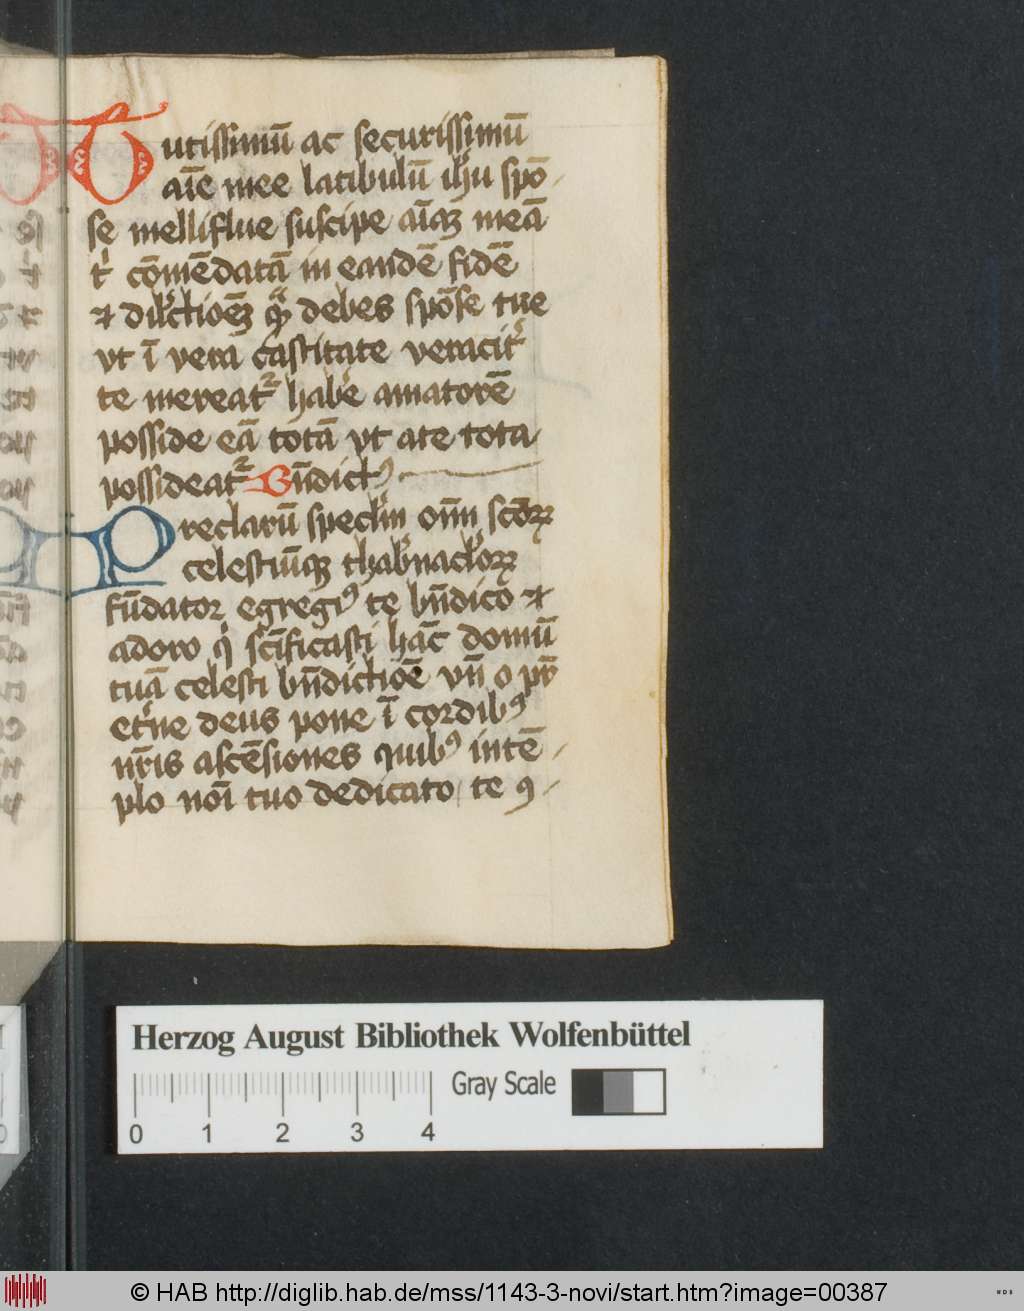 Tutissimū ac securissimū
aīe mee latibulū ihū spō-
se melliflue suscipe aīaꝫ meā
t' cōmēdatā in eandē fidē
⁊ dilcͥtioēꝫ debes spōse tue
vt ī vera castitate veracit'
te mereat᷑ hab'e amatorē
posside eā totā vt a te tota
possideat᷑ Bn̄dictꝰ
Preclarū specl'm oīm sctōꝝ
celestiūqꝫ thab'nacl'oꝝ
fūdator egregiꝰ te bn̄dico ⁊
adoro qͥ sct̄ificasti hāc domū
tuā celesti bn̄dictiōē vn̄ o pr̄
et'ne deus pone ī cordibꝰ
nr̄is ascēsiones quibꝰ in tē-
plo noī tuo dedicato te ꝯ-
Herzog August Bibliothek Wolfenbüttel
Gray Scale
0 1 2 3 4
© HAB http://diglib.hab.de/mss/1143-3-novi/start.htm?image=00387